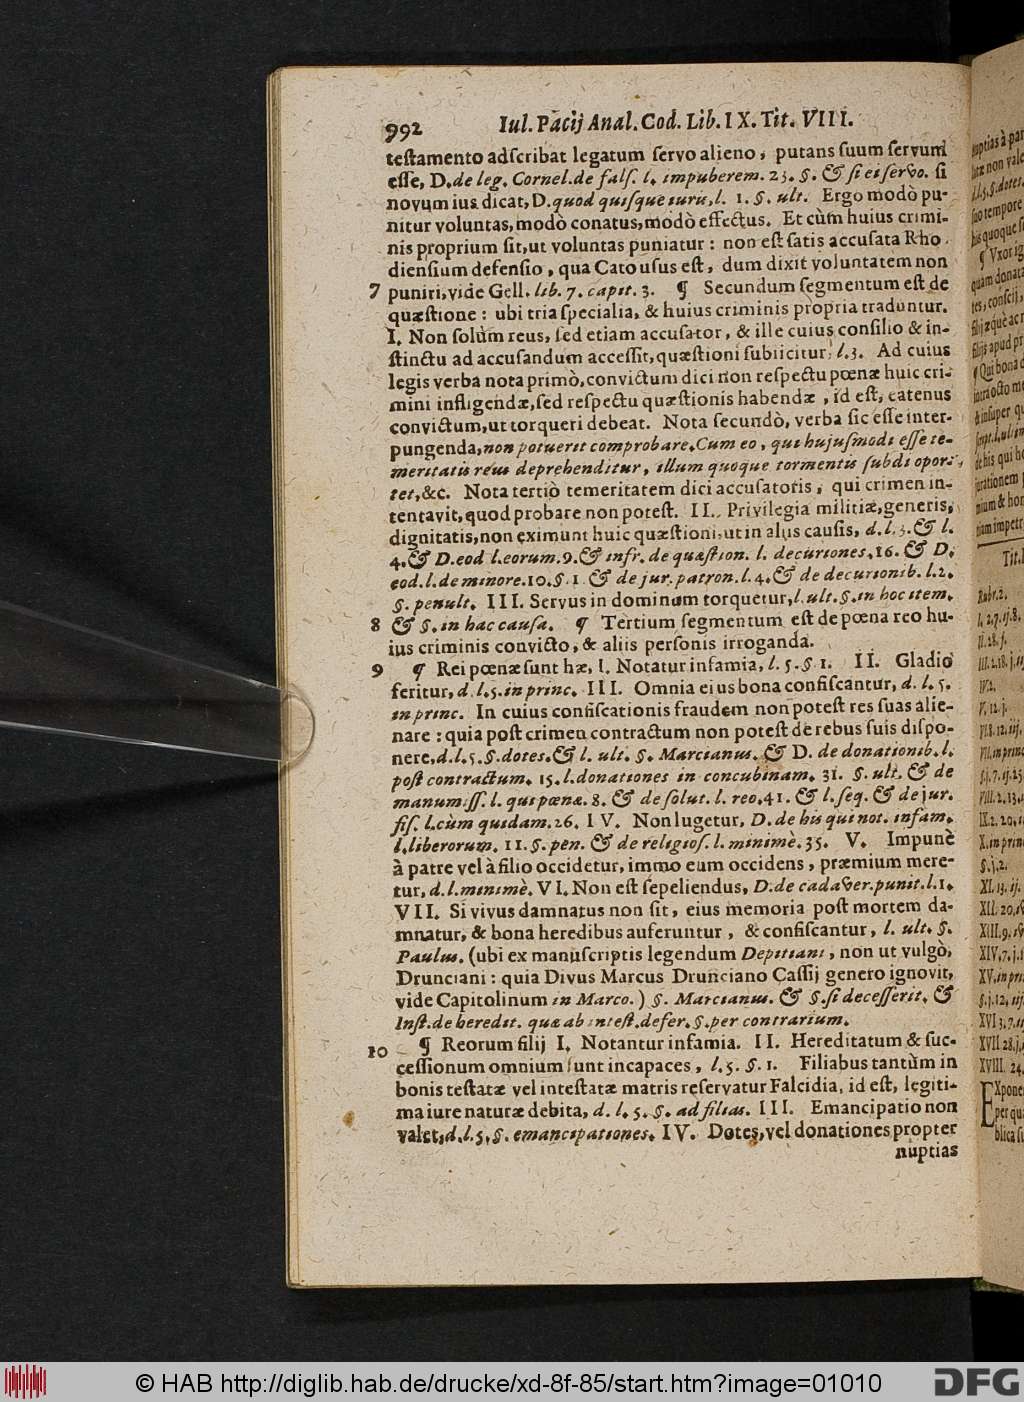 992 Iul. Pacij Anal. Cod. Lib. IX. Tit. VIII.
testamento adscribat legatum servo alieno, putans suum servum
esse, D. de leg. Cornel. de fals. l. impuberem. 23. §. & si ei servo. si
novum ius dicat, D. quod quisque iuru, l. 1. §. ult. Ergo modò pu-
nitur voluntas, modò conatus, modò effectus. Et cùm huius crimi-
nis proprium sit, ut voluntas puniatur: non est satis accusata Rho
diensium defensio, qua Cato usus est, dum dixit voluntatem non
7 puniri, vide Gell. lib. 7. capit. 3. ¶ Secundum segmentum est de
quæstione: ubi tria specialia, & huius criminis propria traduntur.
I. Non solùm reus, sed etiam accusator, & ille cuius consilio & in-
stinctu ad accusandum accessit, quæstioni subiicitur, l. 3. Ad cuius
legis verba nota primò, convictum dici non respectu pœnæ huic cri-
mini infligendæ, sed respectu quæstionis habendæ, id est, eatenus
convictum, ut torqueri debeat. Nota secundò, verba sic esse inter-
pungenda, non potuerit comprobare. Cum eo, qui hujusmodi esse te-
meritatis reus deprehenditur, illum quoque tormentis subdi opor-
tet, &c. Nota tertiò temeritatem dici accusatoris, qui crimen in-
tentavit, quod probare non potest. II. Privilegia militiæ, generis,
dignitatis, non eximunt huic quæstioni, ut in aliis causis, d. l. 3. & l.
4. & D. eod l. eorum. 9. & infr. de quæstion. l. decuriones. 16. & D.
eod. l. de minore. 10. §. 1 & de jur. patron. l. 4. & de decurionib. l. 2.
§. penult. III. Servus in dominum torquetur, l. ult. §. in hoc item.
8 & §. in hac causa. ¶ Tertium segmentum est de pœna reo hu-
ius criminis convicto, & aliis personis irroganda.
9 ¶ Rei pœnæ sunt hæ, I. Notatur infamia, l. 5. §. 1. II. Gladio
feritur, d. l. 5. in princ. III. Omnia eius bona confiscantur, d. l. 5.
in princ. In cuius confiscationis fraudem non potest res suas alie-
nare: quia post crimen contractum non potest de rebus suis dispo-
nere, d. l. 5. §. dotes. & l. ult. §. Marcianus. & D. de donationib. l.
post contractum. 15. l. donationes in concubinam. 31. §. ult. & de
manumiss. l. qui pœnæ. 8. & de solut. l. reo. 41. & l. seq. & de jur.
fis. l. cùm quidam. 26. IV. Non lugetur, D. de his qui not. infam.
l. liberorum. 11. §. pen. & de religios. l. minimè. 35. V. Impunè
à patre vel à filio occidetur, immo eum occidens, præmium mere-
tur, d. l. minimè. VI. Non est sepeliendus, D. de cadaver. punit. l. 1.
VII. Si vivus damnatus non sit, eius memoria post mortem da-
mnatur, & bona heredibus auferuntur, & confiscantur, l. ult. §.
Paulus. (ubi ex manuscriptis legendum Depitiani, non ut vulgò,
Drunciani: quia Divus Marcus Drunciano Cassij genero ignovit,
vide Capitolinum in Marco.) §. Marcianus. & §. si decesserit. &
Inst. de heredit. quæ ab intest. defer. §. per contrarium.
10 ¶ Reorum filij I. Notantur infamia. II. Hereditatum & suc-
cessionum omnium sunt incapaces, l. 5. §. 1. Filiabus tantùm in
bonis testatæ vel intestatæ matris reservatur Falcidia, id est, legiti-
ma iure naturæ debita, d. l. 5. §. ad filias. III. Emancipatio non
valet, d. l. 5. §. emancipationes. IV. Dotes, vel donationes propter
nuptias
© HAB http://diglib.hab.de/drucke/xd-8f-85/start.htm?image=01010
DFG